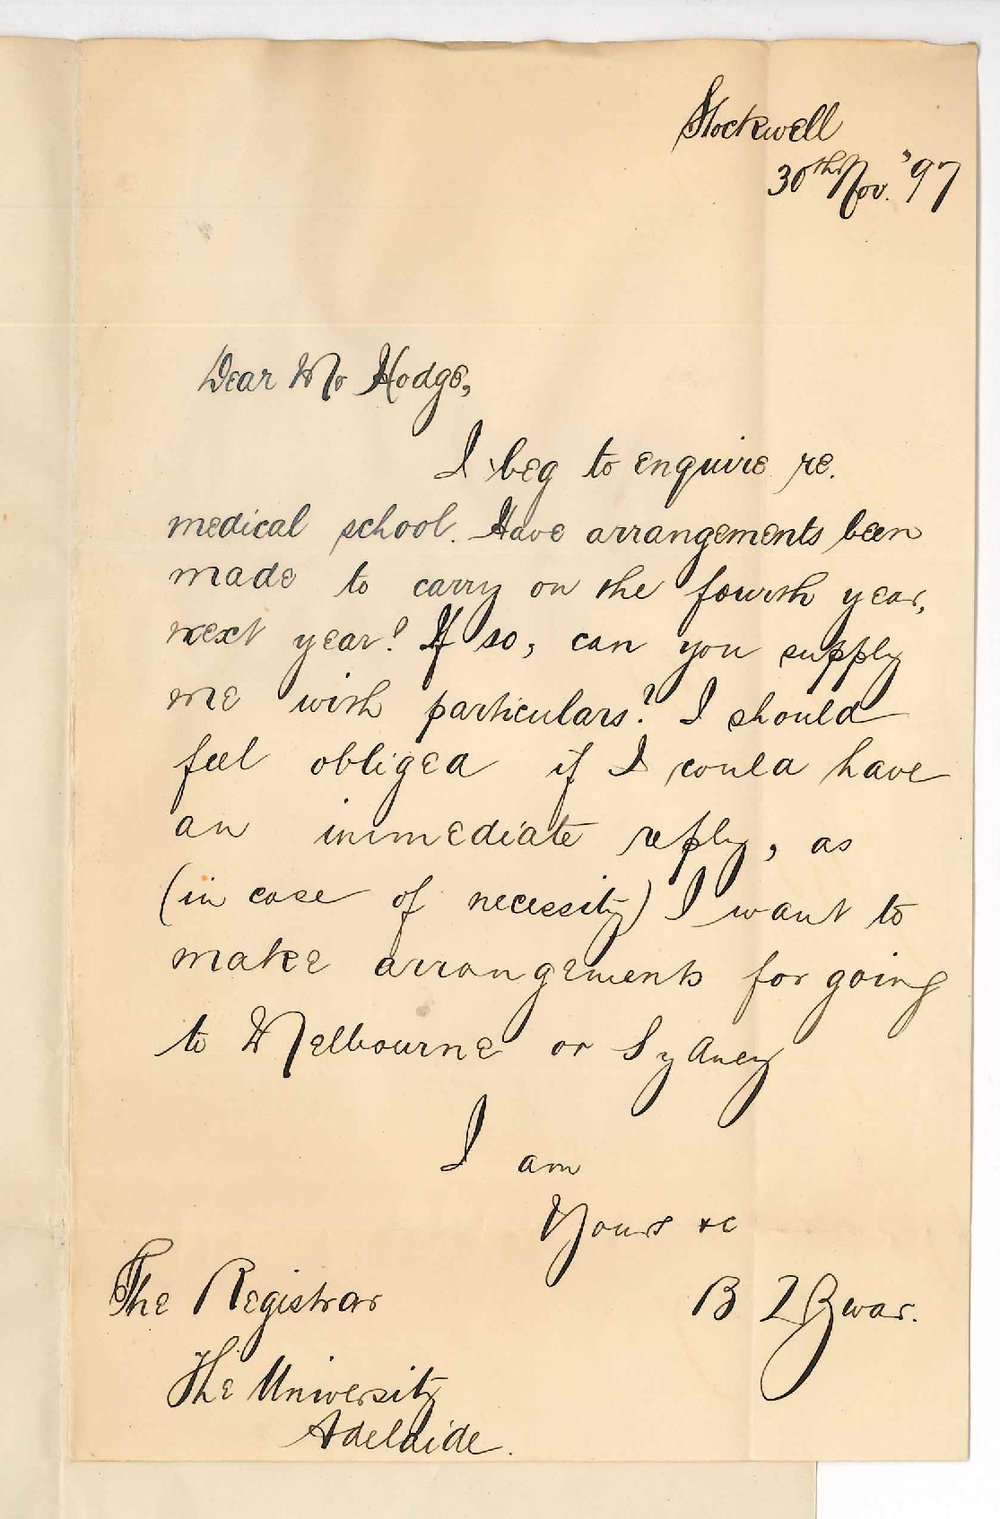 Stockwell
30th Nov. '97
Dear Mr Hodge,
I beg to enquire re.
medical school. Have arrangements been
made to carry on the fourth year,
next year? If so, can you supply
me with particulars? I should
feel obliged if I could have
an immediate reply, as
(in case of necessity) I want to
make arrangements for going
to Melbourne or Sydney
I am
Yours &c
B Zwar.
The Registrar
The University
Adelaide.